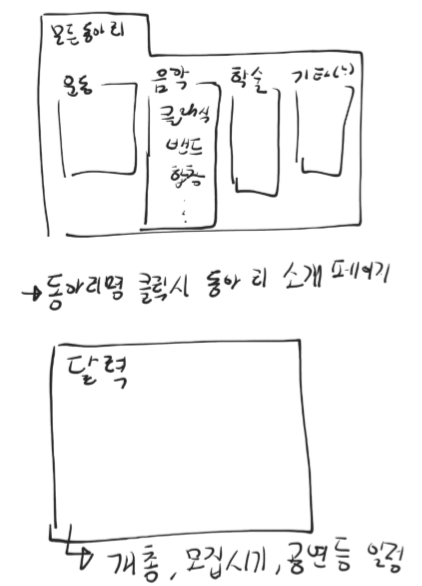 모든동아리
운동
음악
학술
기타(?)
클래식
밴드
합창
⋮
→동아리명 클릭시 동아리 소개 페이지
달력
개총, 모집시기, 공연등 일정